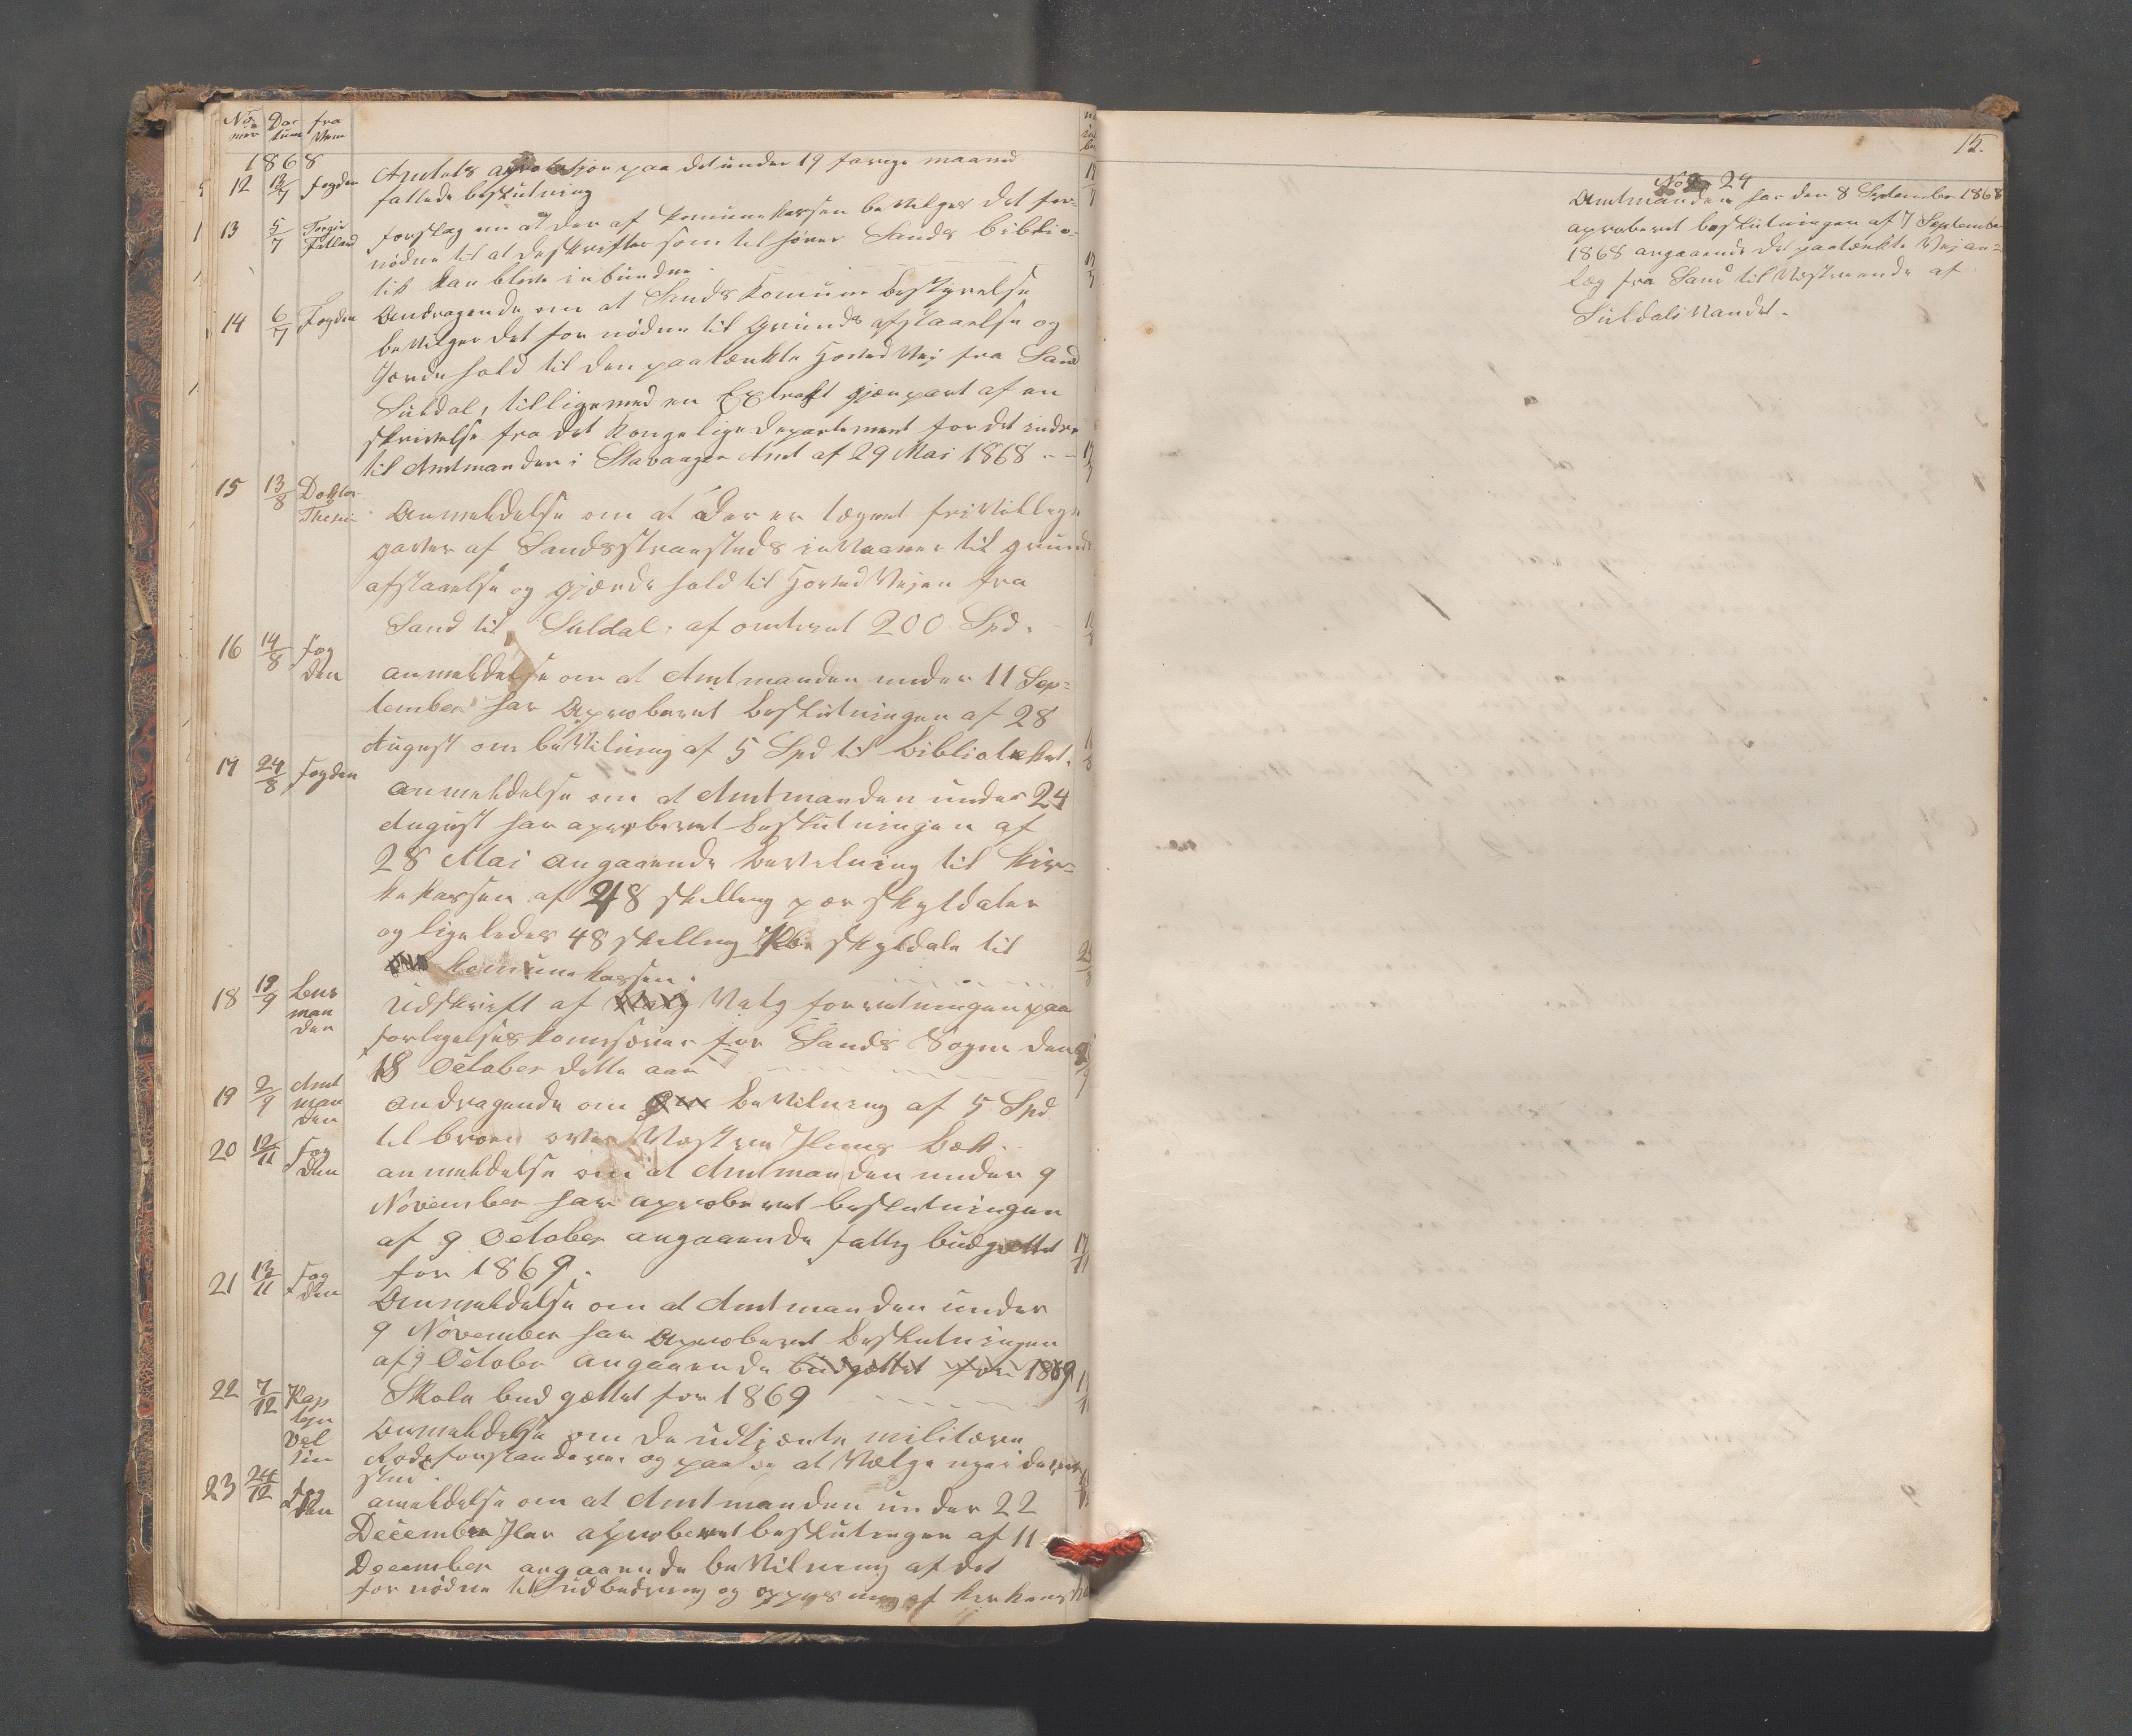 No mer | Da tum | fra Vem
1868
12 13/7 fogden Amtets aprobasjon paa det under 19 forrige maaned
fattede beslutning
13 5/7 Torgir Fatland forslag om at der af komunekassen bevilges det for-
nødne til at deskrifter som tilhører Sands biblio-
tek kan bleve inbundne
14 6/7 Fogden Andragende om at Sands komune bestyrelse
bevilger det fornødne til Grunds afstaaelse og
Gjerdehold til den paatænkte Hoved Vej fra Sand
Suldal, tilligemed en Extrakt gjenpart af en
skrivelse fra det Kongelige departement for det indre
til Amtmanden i Stavanger Amt af 29 Mai 1868
15 13/8 Doktor Anmeldelse om at der er tegnet frivillege
gaver af Sandsstransteds invaaner til grund
afstaaelse og gjærde hold til Hoved Vejen fra
Sand til Suldal, af omtrent 200 Spd.
16 14/8 fog den anmeldelse om at Amtmanden under 11 Sep=
tember har Aproberet beslutningen af 28
August om bevilning af 5 Spd til biblioteket.
17 24/8 fogden anmeldelse om at Amtmanden under 24
August har aproberet beslutningen af
28 Mai angaaende bevelning til kir=
kekassen af 48 skelling per skyldaler
og ligeledes 48 skelling skyldale til
komunekassen.
18 19/9 Lens man den Udskrift af Valg forretningen paa
forlegelseskomisærer for Sands Sogn den
18 October dette aar
19 2/9 Amt man den andragende om bevilning af 5 Spd
til broen over Bæk.
20 12/11 Fog den anmeldelse om at Amtmanden under 9
November har aproberet beslutningen
af 9 October angaaende fattig budgættet
for 1869.
21 13/11 Fog den Anmeldelse om at Amtmanden under
9 November har Aproberet beslutningen
af 9 October angaaende budgættet for 1869
Skole budgættet for 1869
22 7/12 Kap tejn Anmeldelse om de udtjente militære
Rodeforstandere, og paa at Vælge nye i deres
sted
23 24/12 Fog den ameldelse om at Amtmanden under 22
December Har aproberet beslutingen af 11
December angaaende bevilning af det
fornødne til udbedring og oppusning af kirkens
15.
No 24
Amtmanden har den 8 September 1868
aproberet beslutningen af 7 September
1868 angaaende det paatænkte Vej an=
læg fra Sand til Vestreende af
Suldals Vandet.